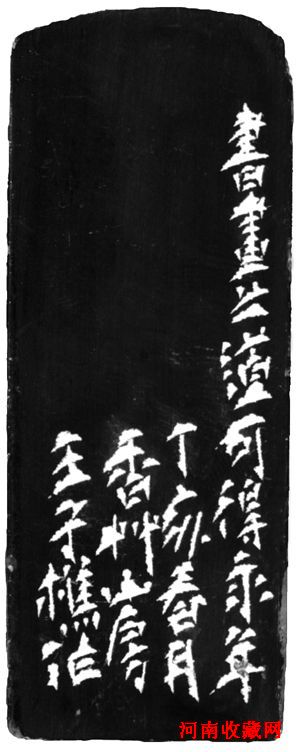 書畫之可得永年
丁亥春月
香艸山房
主子樵作
河南收藏网